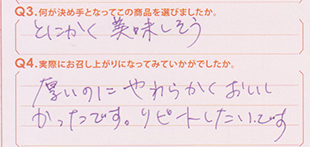 Q3.何が決め手となってこの商品を選びましたか。
とにかく美味しそう
Q4.実際にお召し上がりになってみていかがでしたか。
厚いのにやわらかくおいし
かったです。リピートしたいです